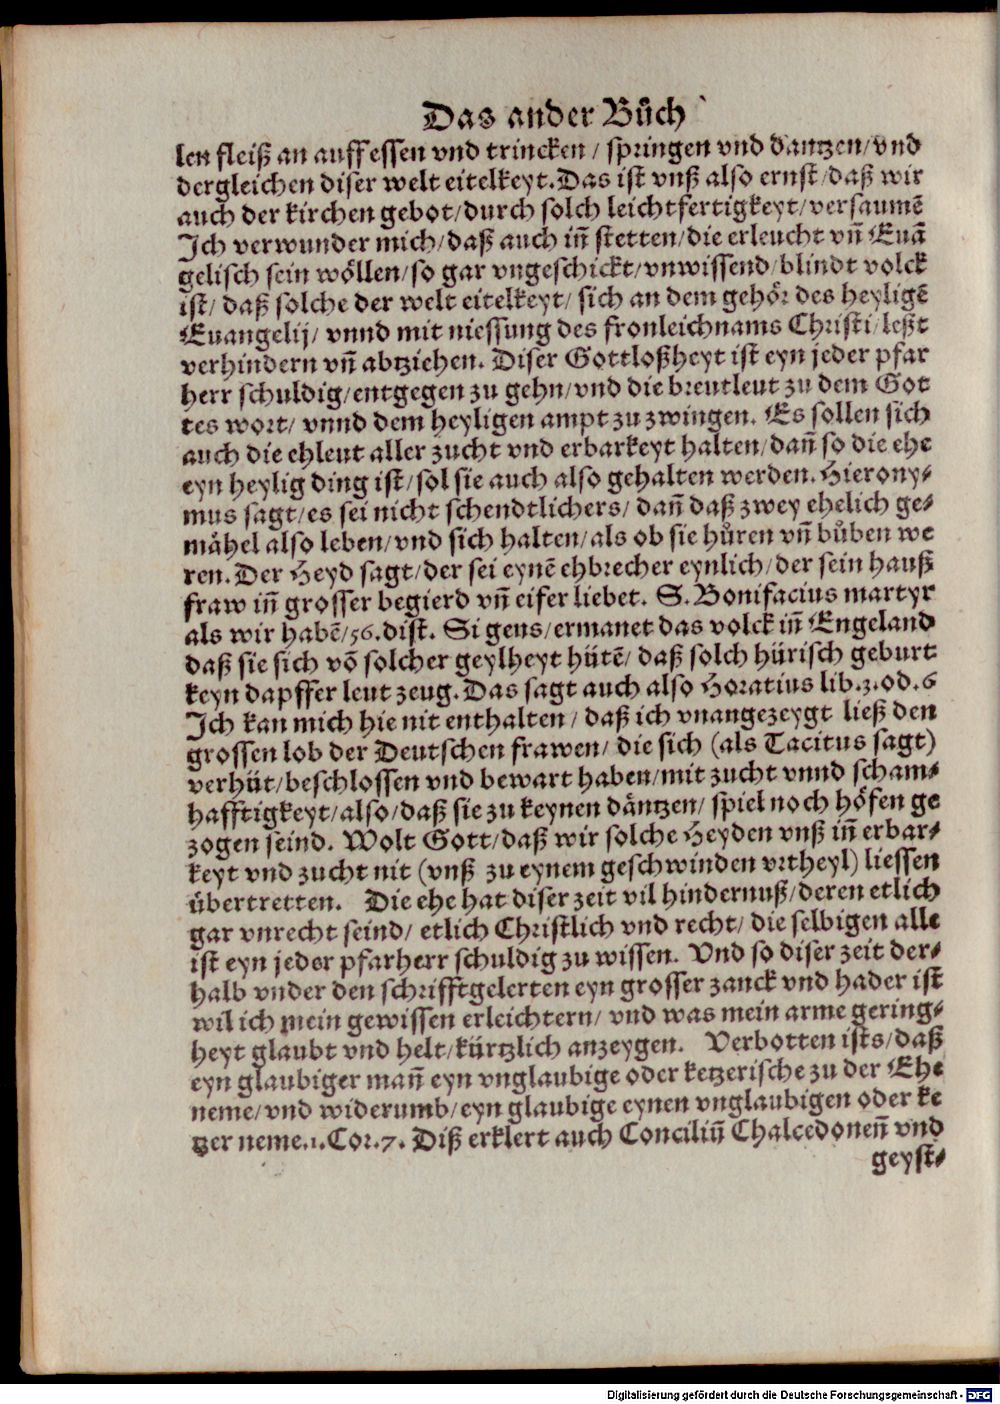 Das ander Bůch
len fleiß an auff essen vnd trincken / springen vnd dantzen/vnd
dergleichen diser welt eitelkeyt. Das ist vnß also ernst/daß wir
auch der kirchen gebot/durch solch leichtfertigkeyt/versaumē
Ich verwunder mich/daß auch iñ stetten/die erleucht vñ Euā
gelisch sein wöllen/so gar vngeschickt/vnwissend/blindt volck
ist/ daß solche der welt eitelkeyt/ sich an dem gehör des heyligē
Euangelij/ vnnd mit niessung des fronleichnams Christi/leßt
verhindern vñ abtziehen. Diser Gottloßheyt ist eyn jeder pfar
herr schuldig/entgegen zu gehn/vnd die breutleut zu dem Got
tes wort/ vnnd dem heyligen ampt zu zwingen. Es sollen sich
auch die ehleut aller zucht vnd erbarkeyt halten/dañ so die ehe
eyn heylig ding ist/sol sie auch also gehalten werden. Hierony⸗
mus sagt/es sei nicht schendtlichers/ dañ daß zwey ehelich ge⸗
mähel also leben/vnd sich halten/als ob sie hůren vñ bůben we
ren. Der Heyd sagt/der sei eynē ehbrecher eynlich/der sein hauß
fraw iñ grosser begierd vñ eifer liebet. S. Bonifacius martyr
als wir habē/56.dist. Si gens/ermanet das volck iñ Engeland
daß sie sich võ solcher geylheyt hütē/ daß solch hürisch geburt
keyn dapffer leut zeug. Das sagt auch also Horatius lib.3.od.6
Ich kan mich hie nit enthalten / daß ich vnangezeygt ließ den
grossen lob der Deutschen frawen/ die sich (als Tacitus sagt)
verhüt/beschlossen vnd bewart haben/mit zucht vnnd scham⸗
hafftigkeyt/also/daß sie zu keynen däntzen/ spiel noch höfen ge
zogen seind. Wolt Gott/daß wir solche Heyden vnß iñ erbar⸗
keyt vnd zucht nit (vnß zu eynem geschwinden vrtheyl) liessen
übertretten. Die ehe hat diser zeit vil hindernuß/deren etlich
gar vnrecht seind/ etlich Christlich vnd recht/ die selbigen alle
ist eyn jeder pfarherr schuldig zu wissen. Vnd so diser zeit der⸗
halb vnder den schrifftgelerten eyn grosser zanck vnd hader ist
wil ich mein gewissen erleichtern/ vnd was mein arme gering⸗
heyt glaubt vnd helt/kürtzlich anzeygen. Verbotten ists/daß
eyn glaubiger mañ eyn vnglaubige oder ketzerische zu der Ehe
neme/vnd widerumb/eyn glaubige eynen vnglaubigen oder ke
tzer neme.1.Cor.7. Diß erklert auch Conciliũ Chalcedonen̄ vnd
geyst⸗
Digitalisierung gefördert durch die Deutsche Forschungsgemeinschaft - DFG